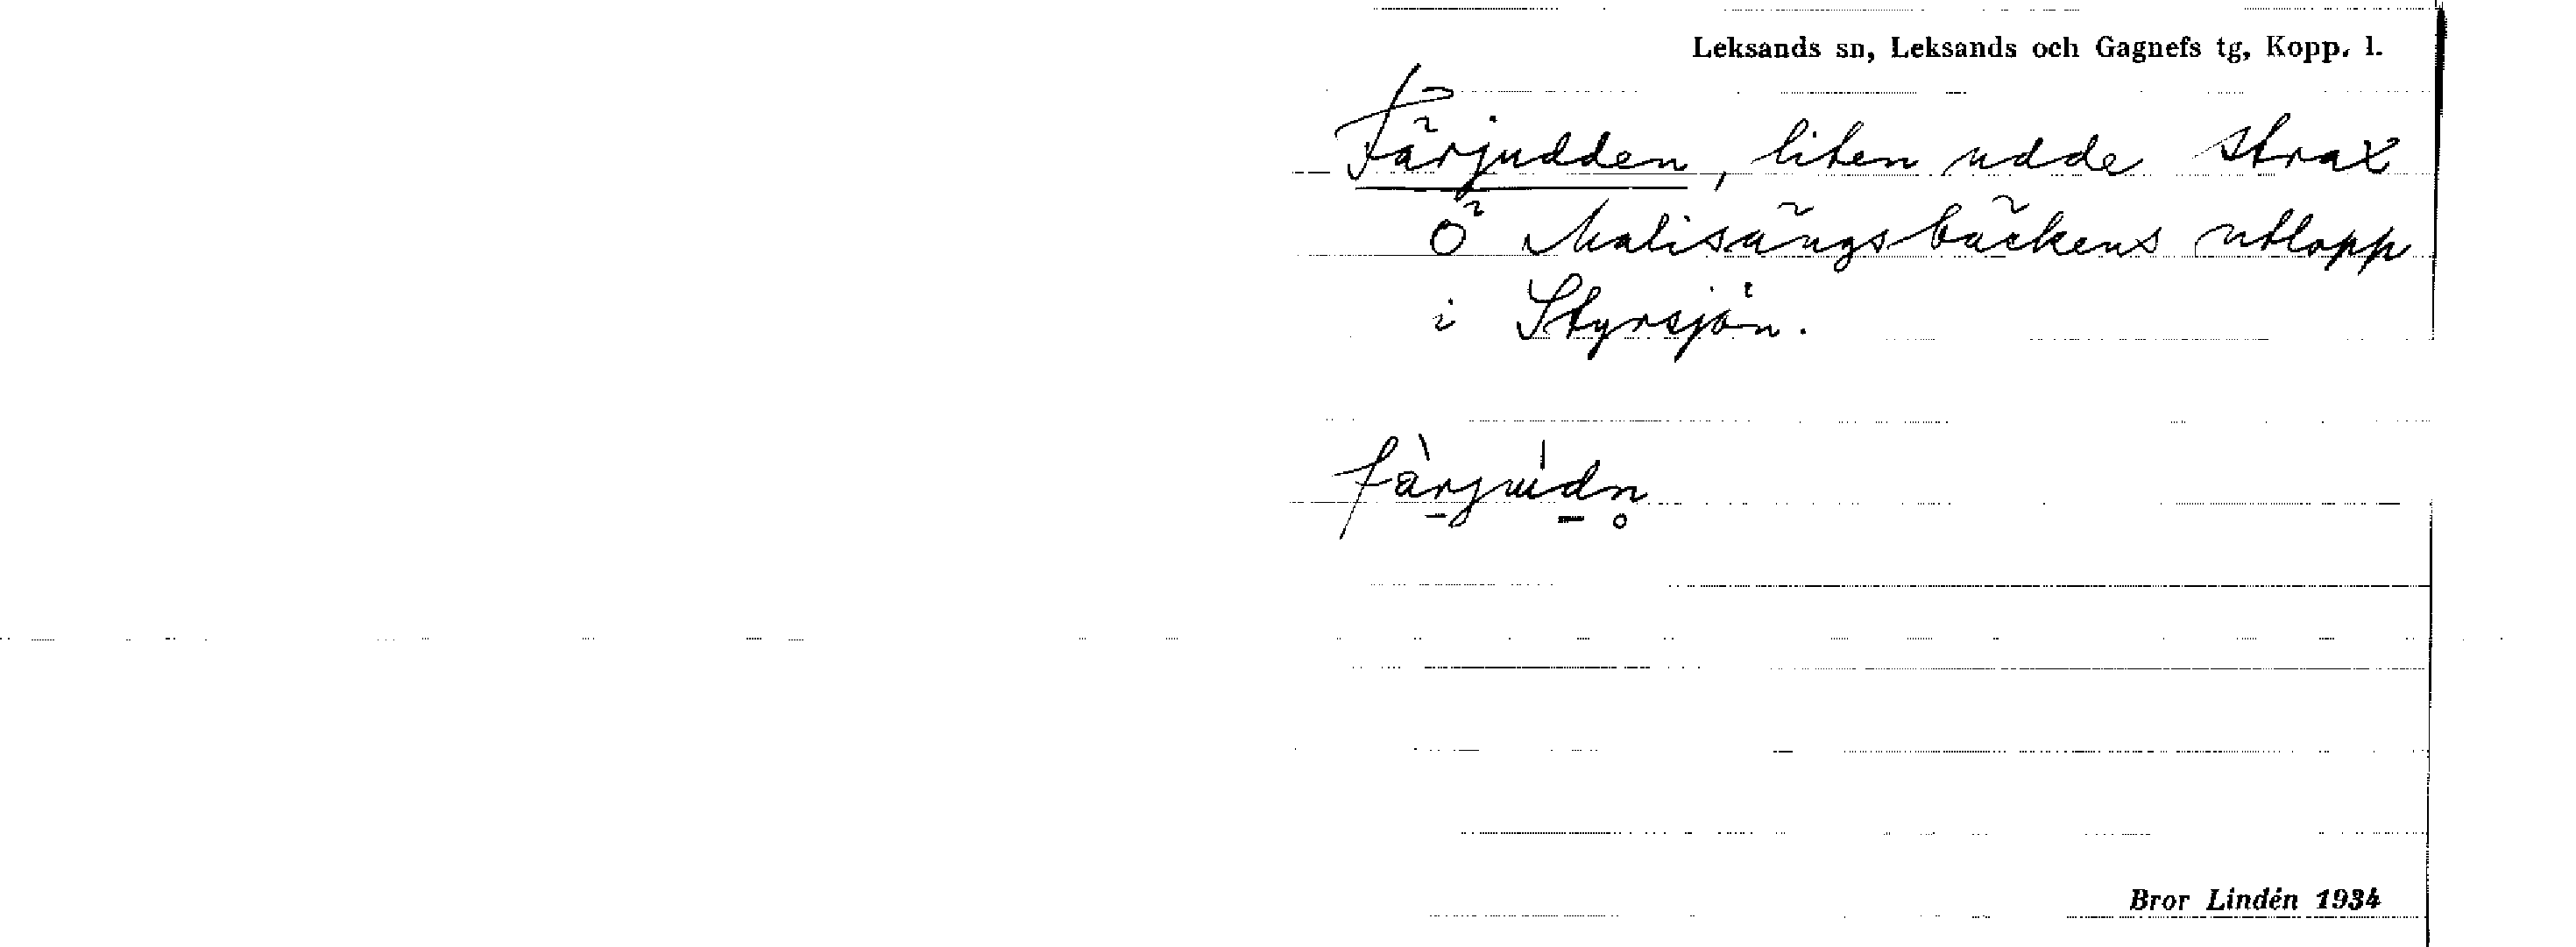 Leksands sn, Leksands och Gagnefs tg, Kopp. l.
Färjudden, liten udde strax
Ö Malisängsbäckens utlopp
i Styrsjön.
fàrju̍dn̥
Bror Lindén 1934